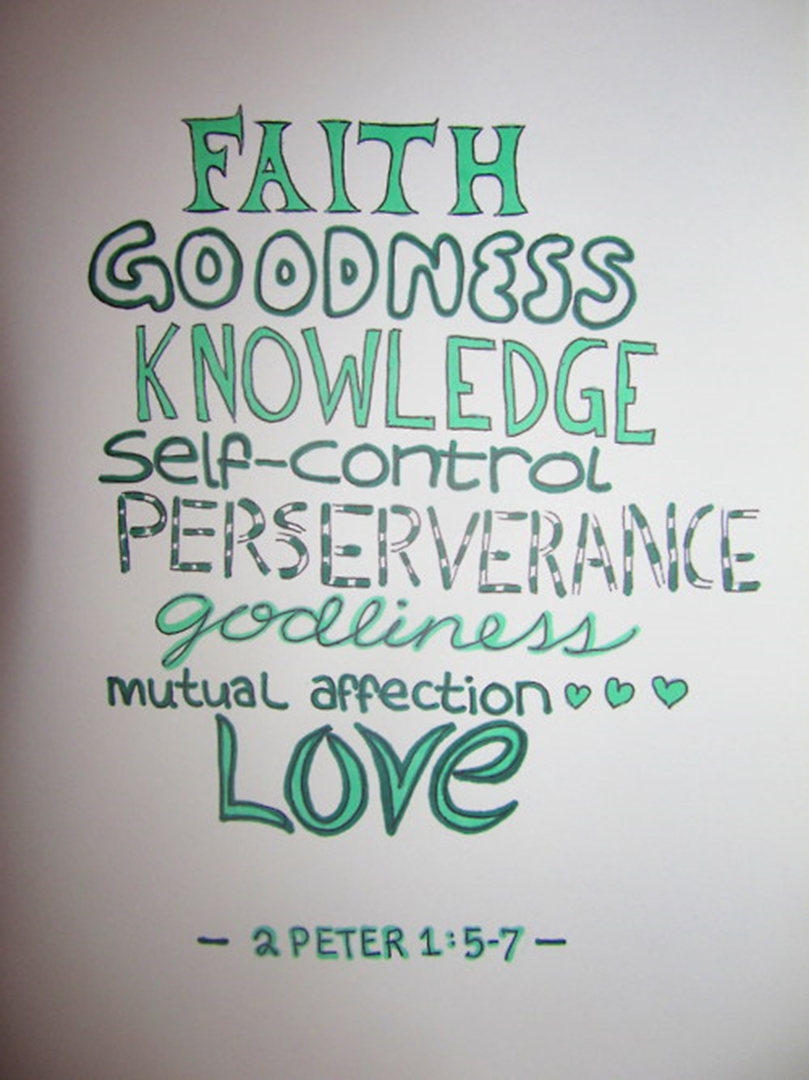 FAITH
GOODNESS
KNOWLEDGE
Self-control
PERSERVERANCE
godliness
mutual affection
LOVe
- 2 PETER 1:5-7 -